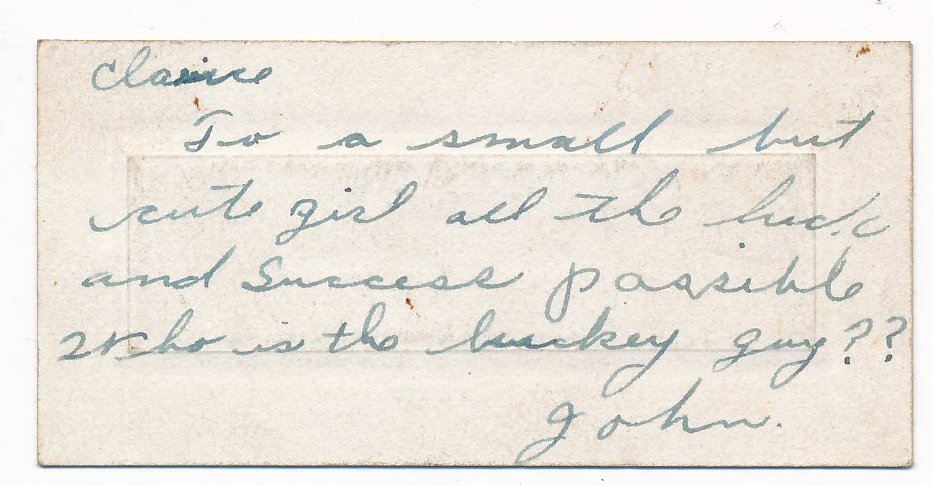 Claire
To a small but
cute girl all the luck
and Success possible
Who is the luckey guy??
John.